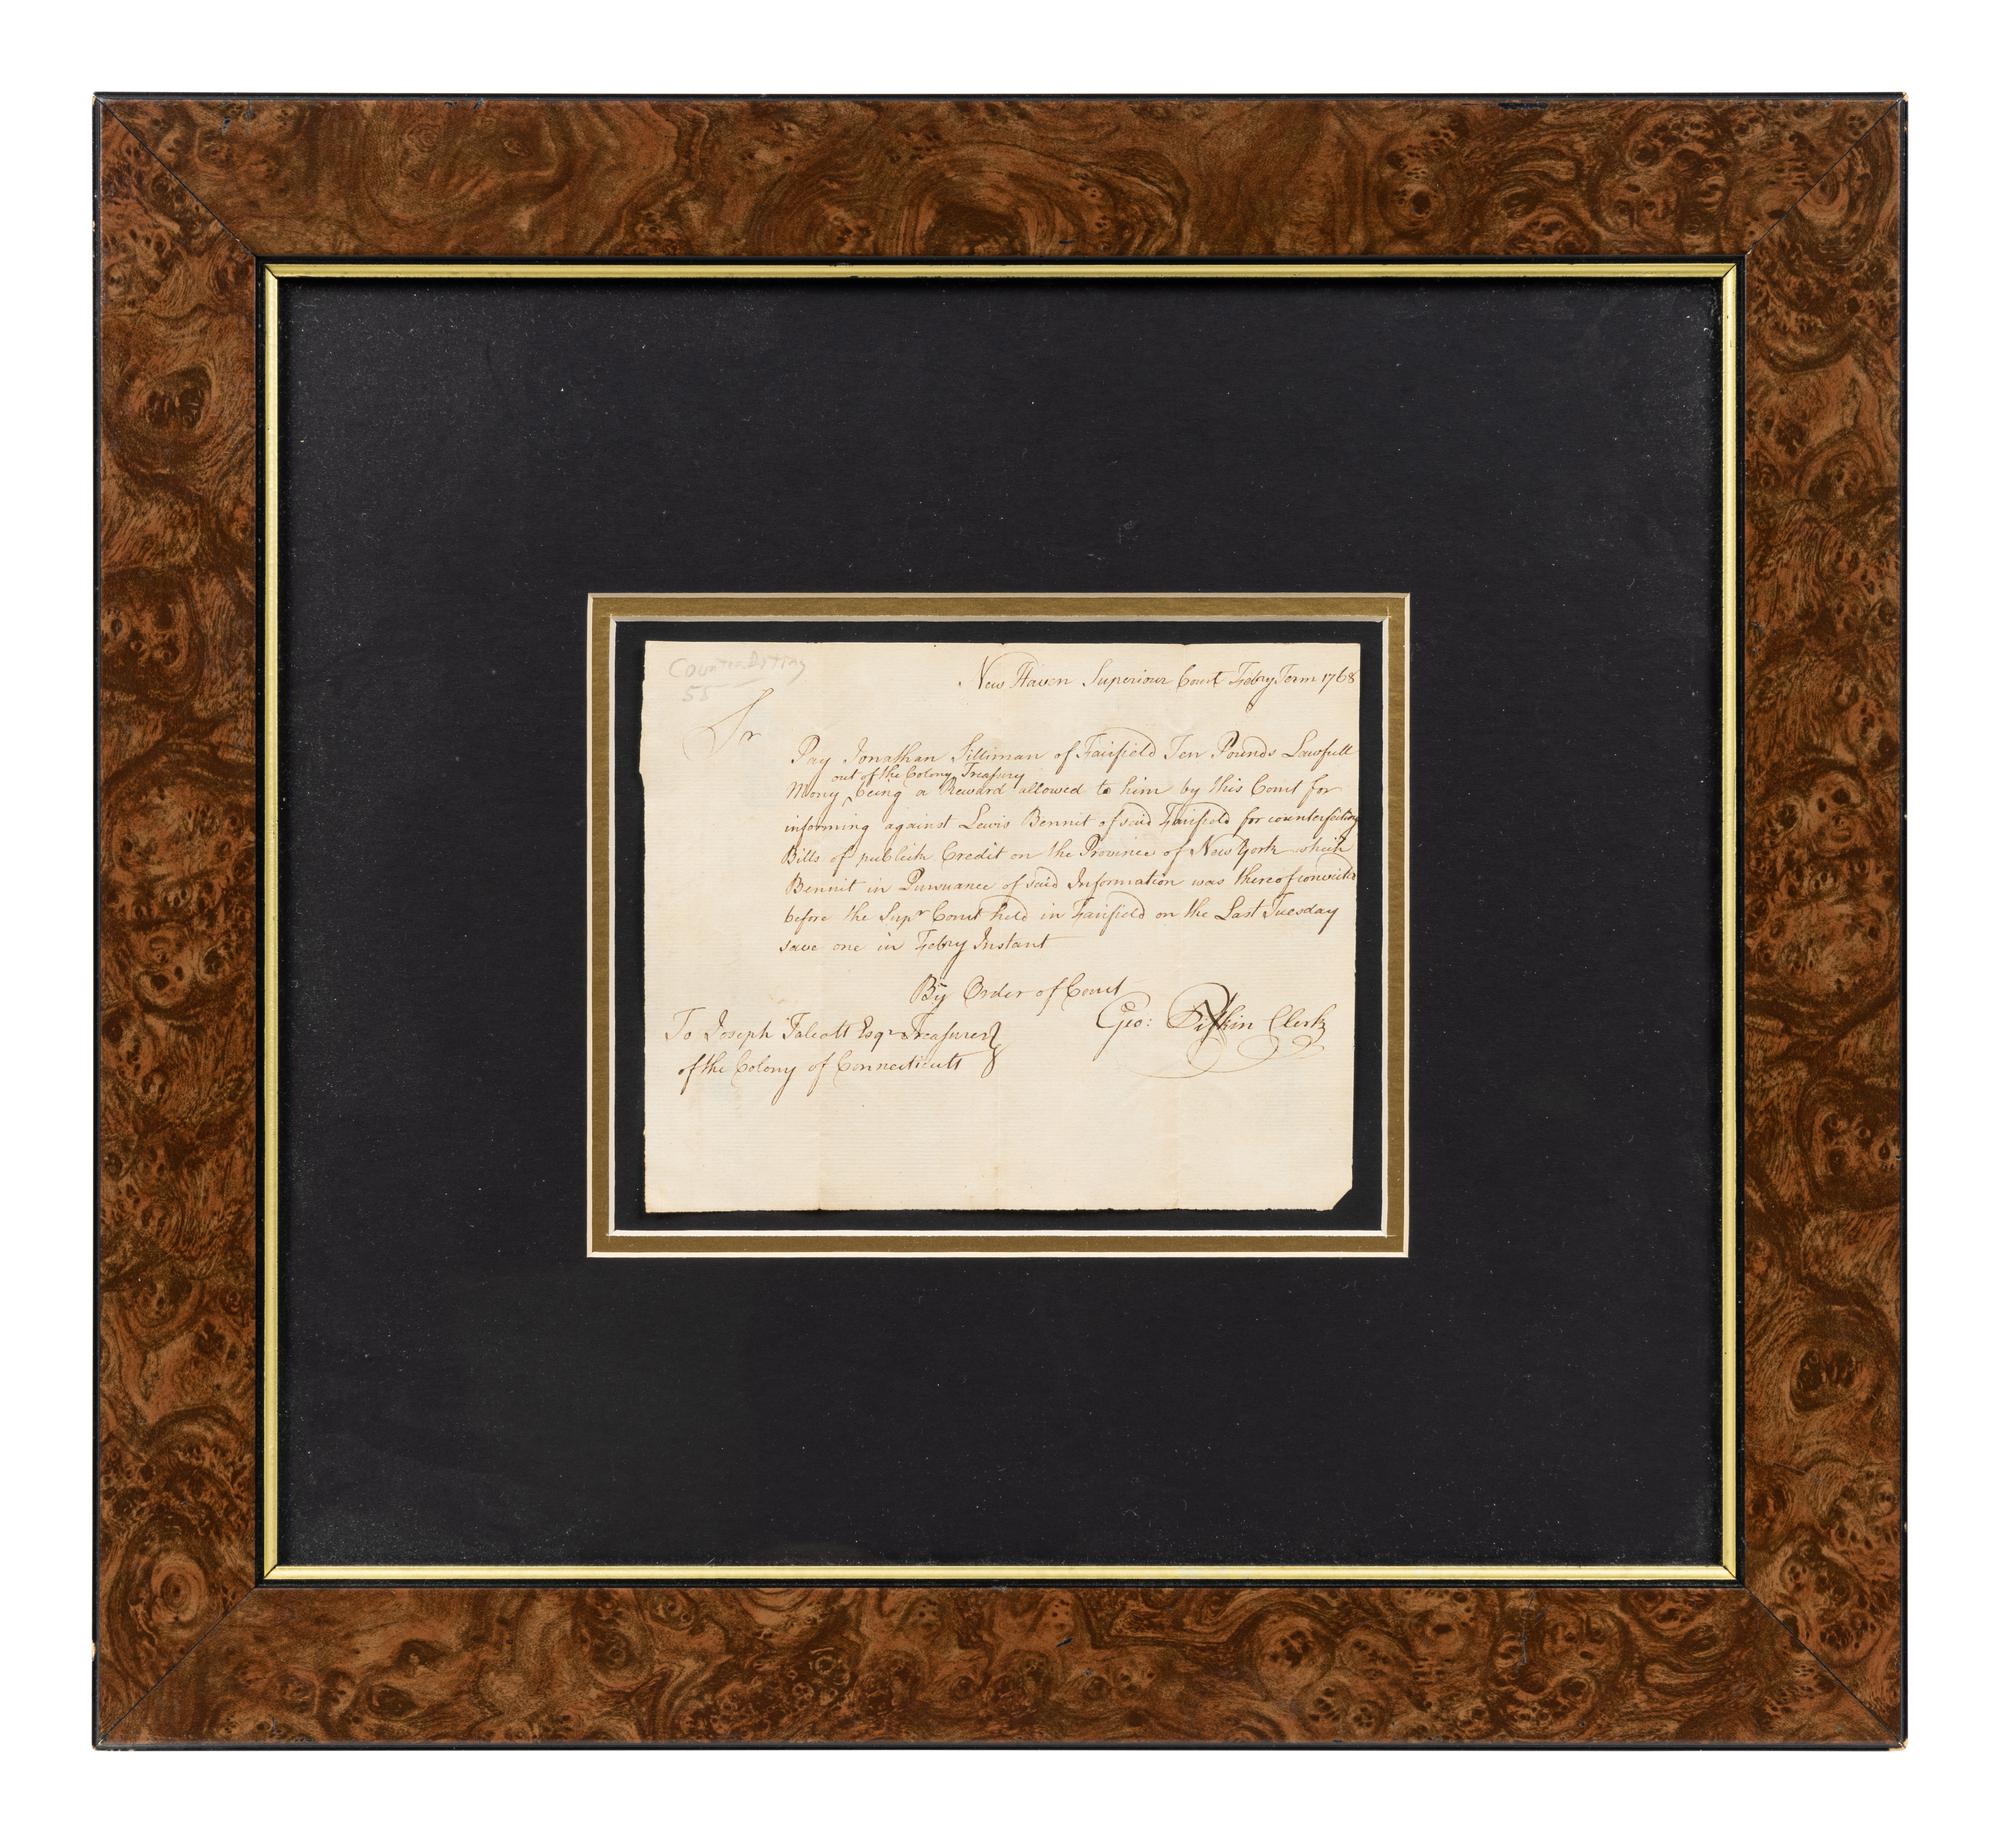 Counterfeiting
55
New Haven Superiour Court Febry Term 1768
Sr
Pay Jonathan Silliman of Fairfield Ten Pounds Lawfull
out of the Colony Treasury
Mony ^ being a Reward allowed to him by this Court for
informing against Lewis Bennit of said Fairfield for counterfeiting
Bills of publick Credit on the Province of New York which
Bennit in Pursuance of said Information was thereof convicted
before the Supr Court held in Fairfield on the Last Tuesday
save one in Febry Instant
By Order of Court
Geo: Pitkin Clerk
To Joseph Talcott Esqr Treasurer
of the Colony of Connecticutt